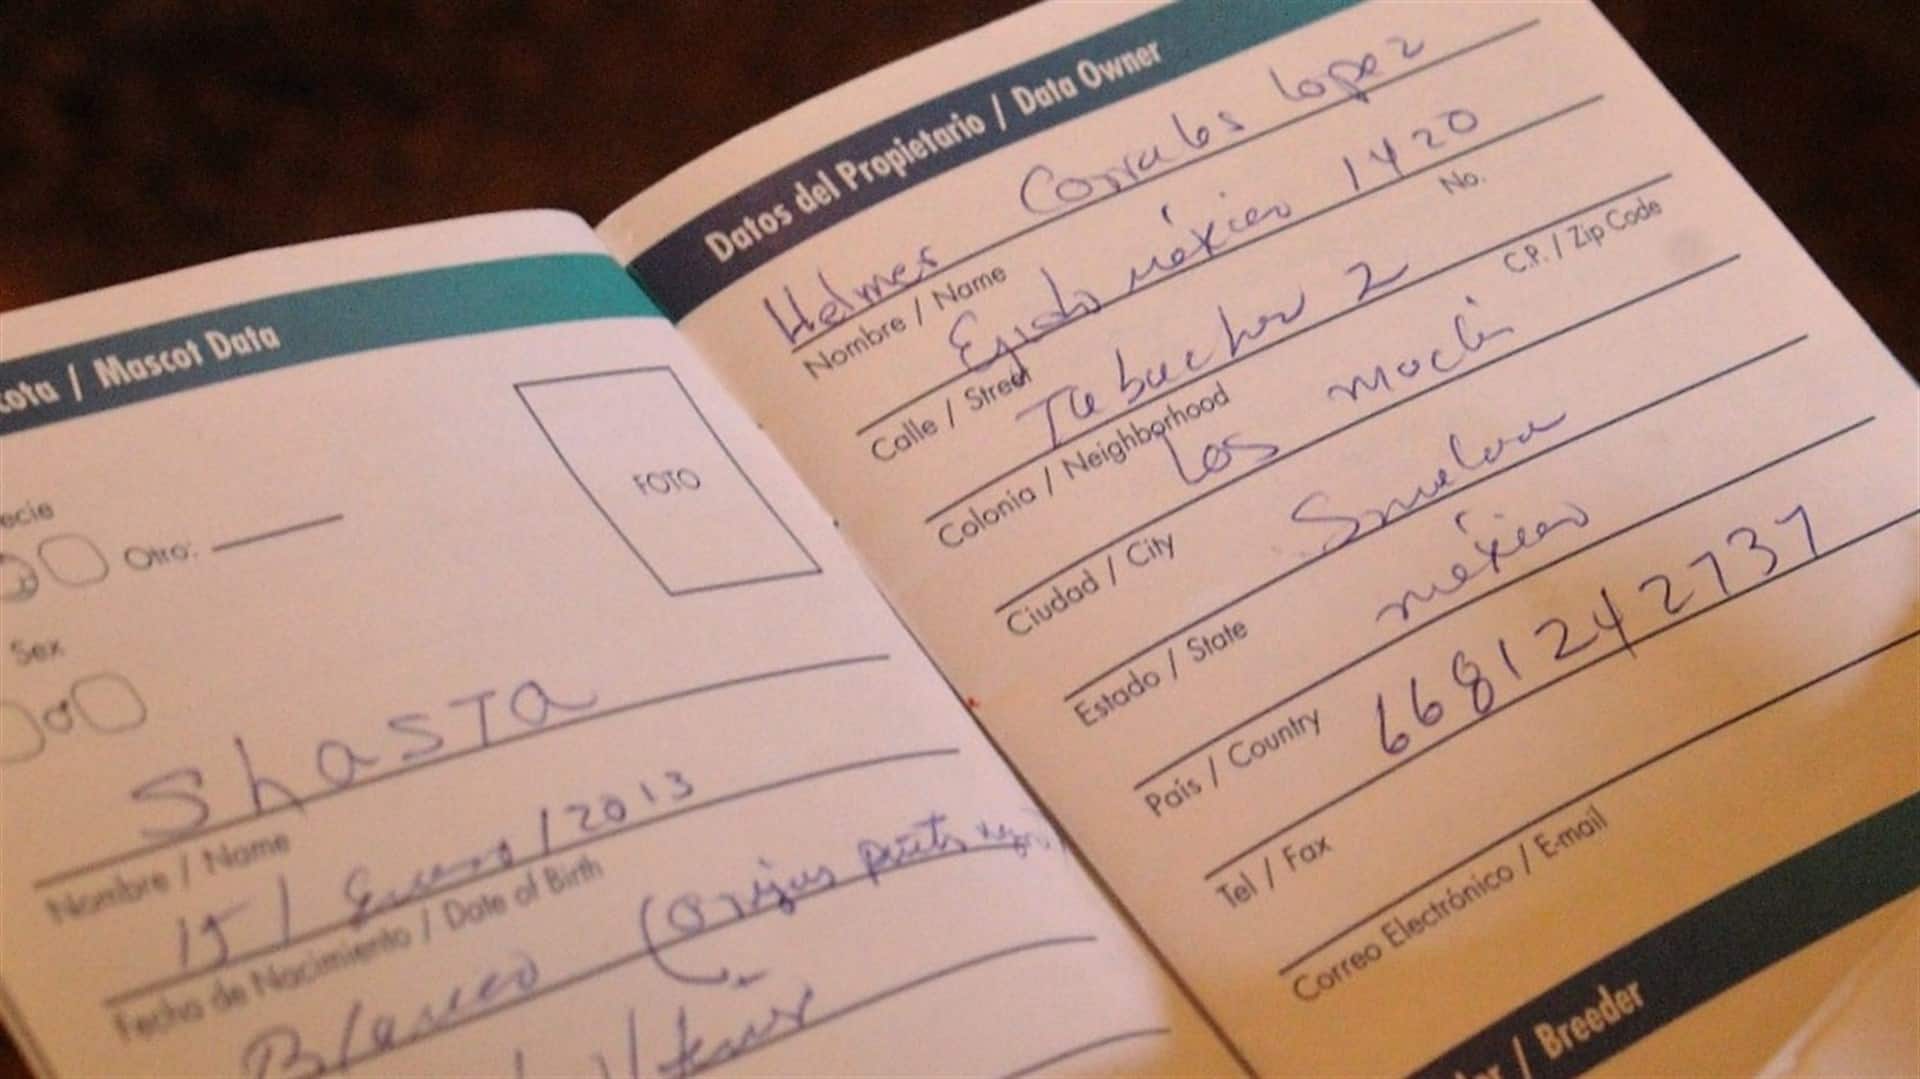 cota / Mascot Data
ecie
Otro:
FOTO
Sex
Shasta
Nombre / Name
15 / Enero / 2013
Fecha de Nacimiento / Date of Birth
Blanco (orejas
Datos del Propietario / Data Owner
Helmes Corrales Lopez
Nombre / Name
Ejido México 1420
Calle / Street No.
Tabachin 2
Colonia / Neighborhood C.P. / Zip Code
Los Mochis
Ciudad / City
Sinaloa
Estado / State
México
País / Country
6681242737
Tel / Fax
Correo Electrónico / E-mail
/ Breeder